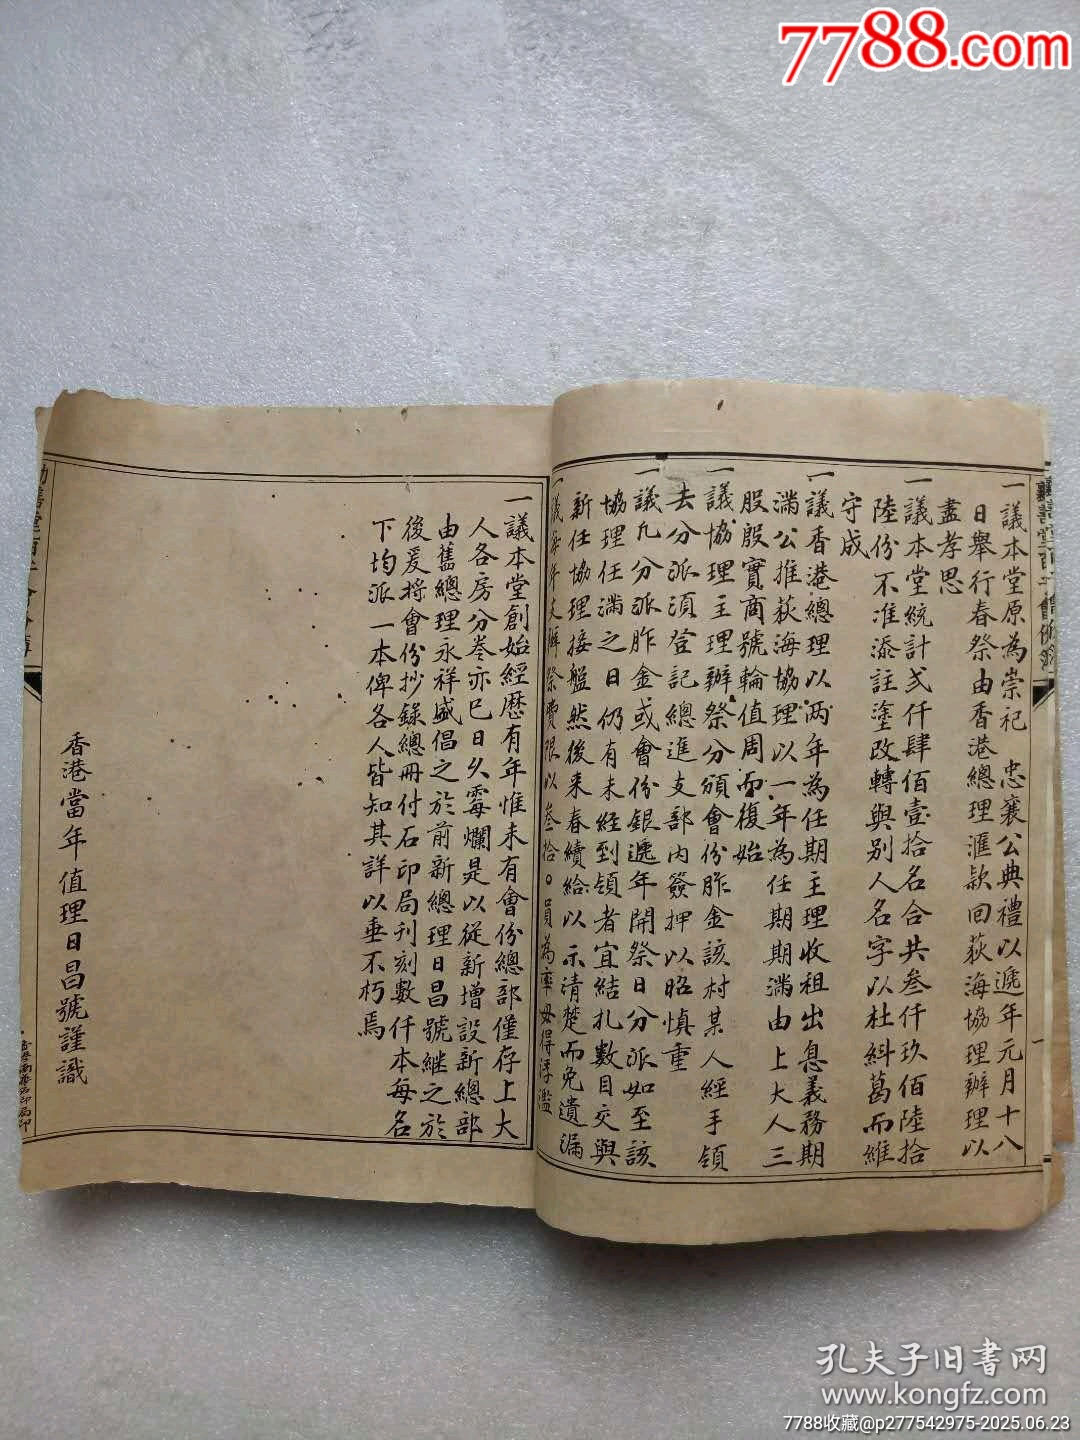 7788.com
一議本堂原為崇祀 忠襄公典禮以遞年元月十八
日舉行春祭由香港總理滙款回荻海協理辦理以
盡孝思
一議本堂統計弍仟肆佰壹拾名合共叁仟玖佰陸拾
陸份不准添註塗改轉與别人名字以杜糾葛而維
守成
一議香港總理以两年為任期主理收租出息義務期
滿公推荻海協理以一年為任期期滿由上大人三
股殷實商號輪值周而復始
一議協理主理辦祭分頒會份胙金該村某人經手領
去分派須登記總進支部内簽押以昭慎重
一議凡分派胙金或會份銀遞年開祭日分派如至該
協理任滿之日仍有未經到領者宜結扎數目交與
新任協理接盤然後来春續給以示清楚而免遺漏
一議每年支辦祭費限以叁拾員為率毋得浮濫
一議本堂創始經歷有年惟未有會份總部僅存上大
人各房分峇亦已日久霉爛是以從新增設新總部
由舊總理永祥盛倡之於前新總理日昌號継之於
後爰将會份抄錄總冊付石印局刊刻數仟本每名
下均派一本俾各人皆知其詳以垂不朽焉
香港當年值理日昌號謹識
孔夫子旧書网
www.kongfz.com
7788收藏@p277542975-2025.06.23